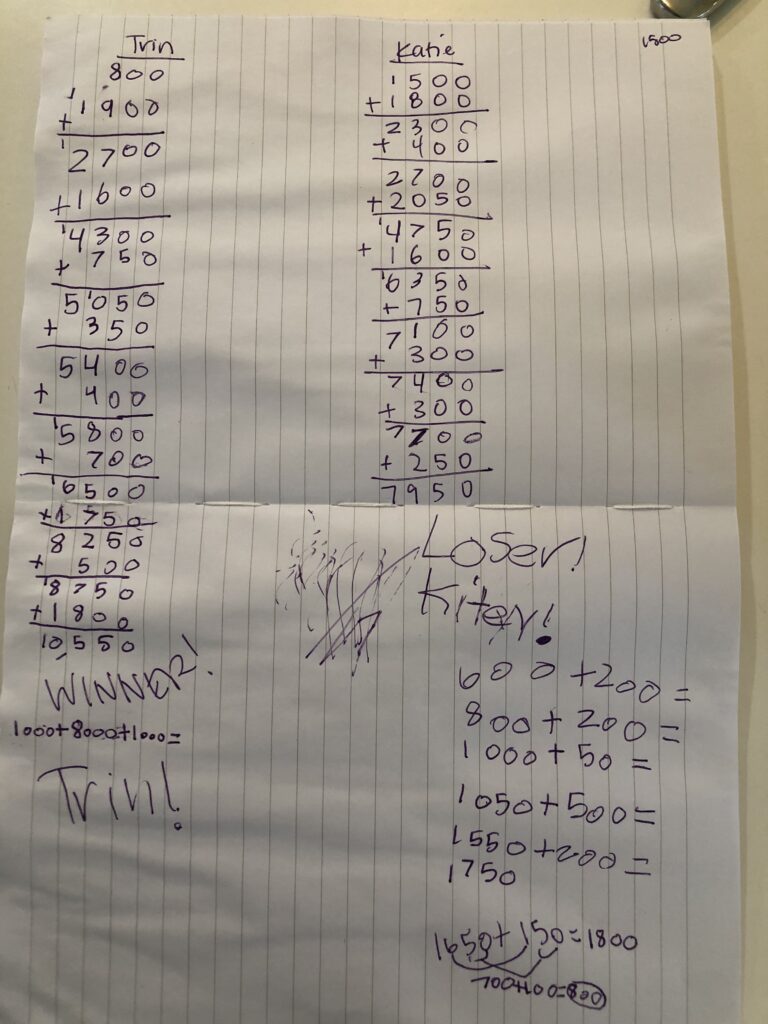 Trin
800
+1900
2700
+1600
4300
+ 750
5050
+ 350
5400
+ 400
5800
+ 700
6500
+1750
8250
+ 500
8750
+1800
10,550
WINNER!
1000+8000+1000=
Trin!
Katie
1500
+1800
2300
+ 400
2700
+2050
4750
+ 1600
6350
+ 750
7100
+ 300
7400
+ 300
7700
+ 250
7950
Loser!
600+200=
800+200=
1000+50=
1050+500=
1550+200=
1750
1650+150=1800
700+100=800
1500